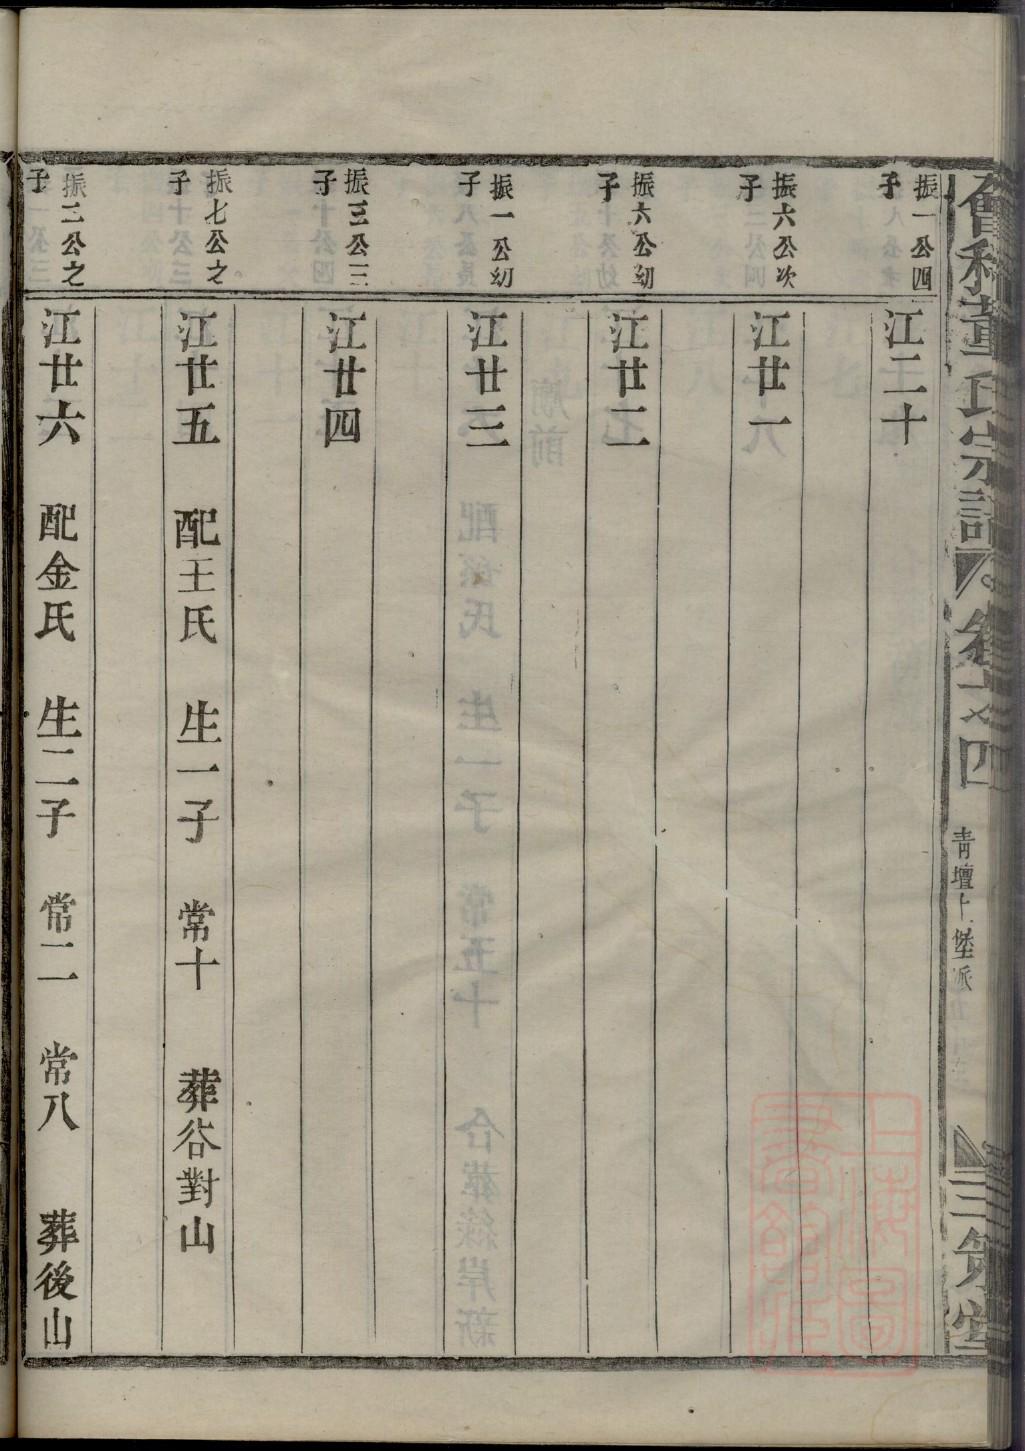 會稽董氏宗譜
卷之四
青壇上堡派
三策堂
振一公四子
江二十
振六公次子
江廿一
振六公幼子
江廿二
振一公幼子
江廿三
振三公三子
江廿四
振七公之子
江廿五 配王氏 生一子 常十 葬谷對山
振二公之子
江廿六 配金氏 生二子 常二 常八 葬後山